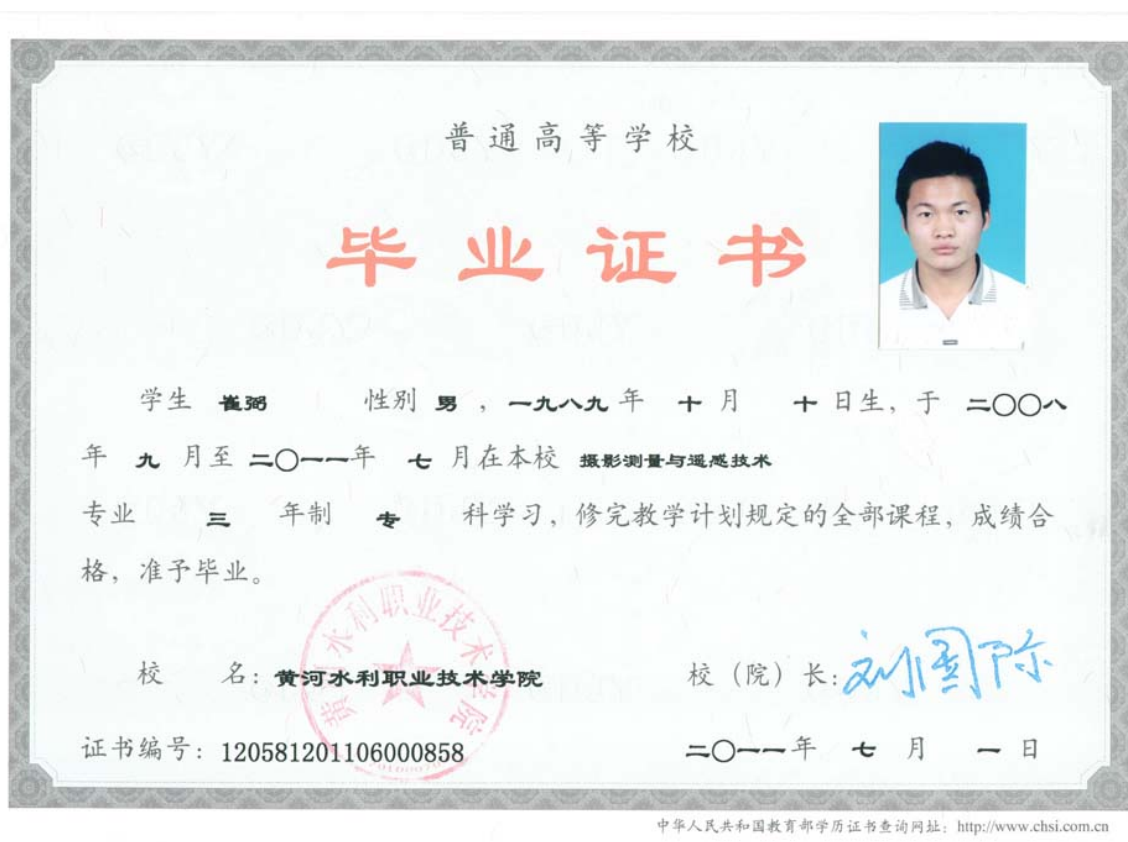 普通高等学校
毕业证书
学生 崔弼 性别 男 ，一九八九 年 十 月 十 日生，于 二〇〇八
年 九 月至 二〇一一年 七 月在本校 摄影测量与遥感技术
专业 三 年制 专 科学习，修完教学计划规定的全部课程，成绩合
格，准予毕业。
黄河水利职业技术学院
校 名：黄河水利职业技术学院 校（院）长：刘国际
证书编号：120581201106000858 二〇一一年 七 月 一 日
中华人民共和国教育部学历证书查询网址：http://www.chsi.com.cn